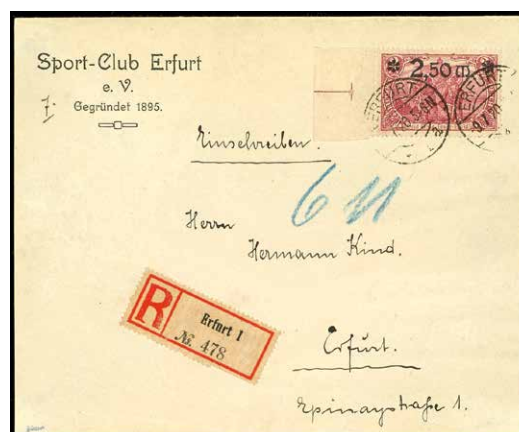 Sport-Club Erfurt
e. V.
Gegründet 1895.
* 2,50 m. *
ERFURT
ERFURT
Einschreiben.
6 11
Herrn
Hermann Kind.
R
Erfurt 1
№. 478
Erfurt.
Epinaystraße 1.